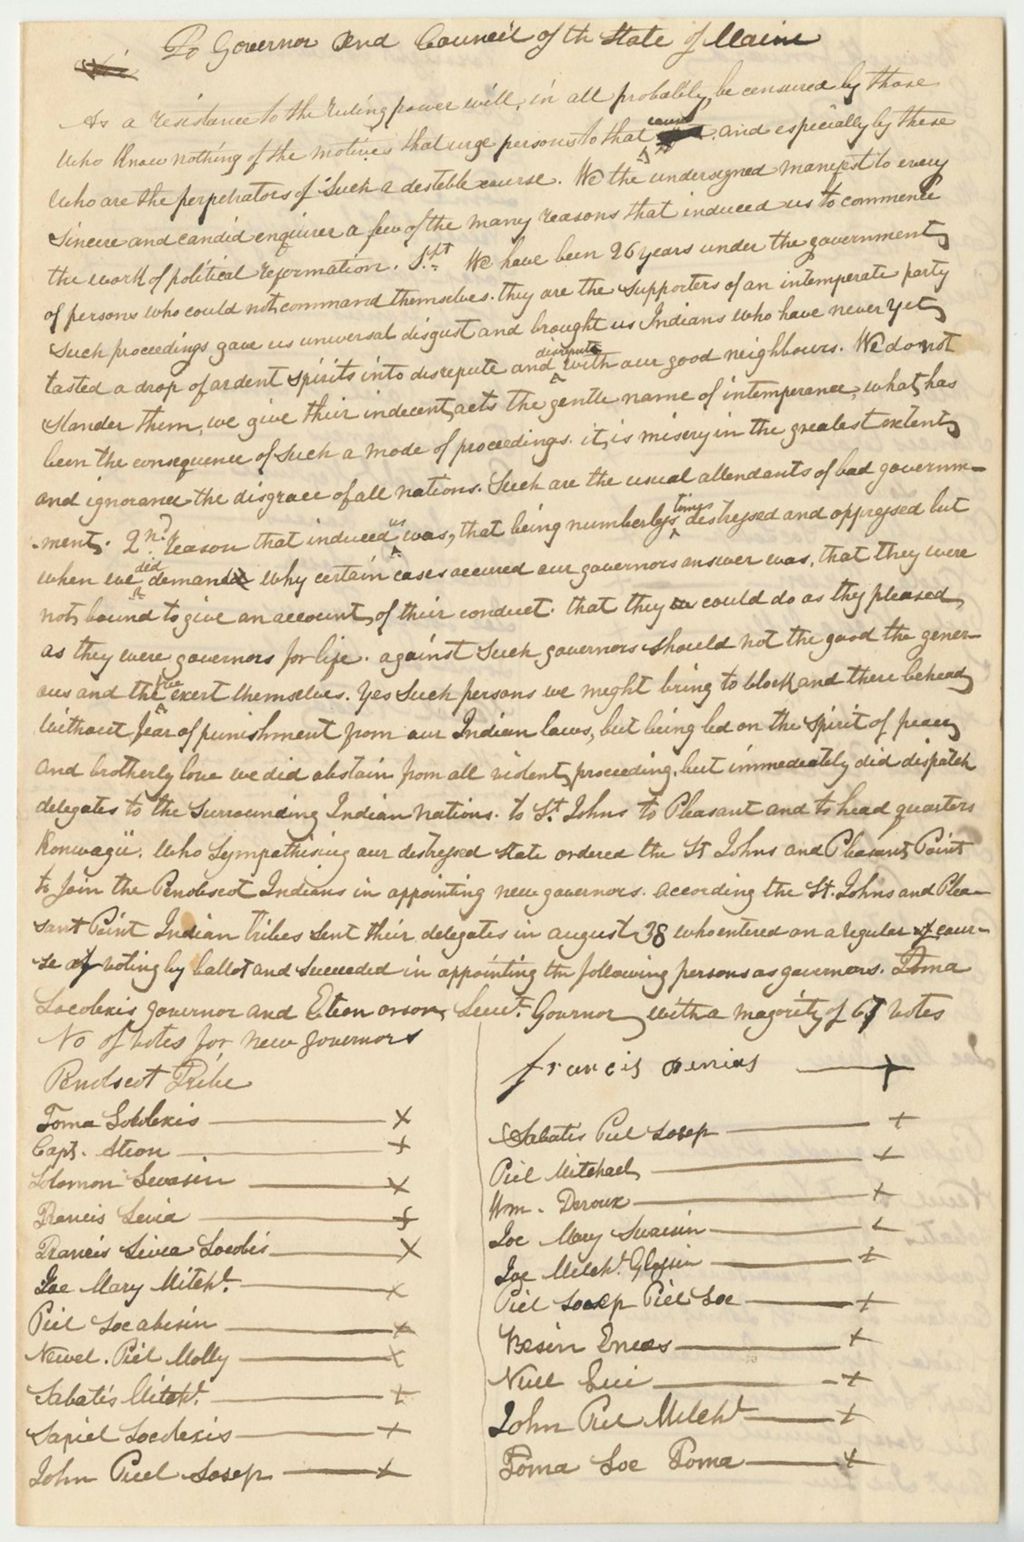 To Governor and Council of th State of Maine
As a resistance to the ruling power will, in all probably, be censured by those
who know nothing of the motives that urge persons to that course and especially by these
who are the perpetrators of such a desteble course. We the undersigned manifest to every
sincere and candid enquirer a few of the many reasons that induced us to commence
the work of political reformation. 1.st We have been 26 years under the government
of persons who could not command themselves. they are the supporters of an intemperate party
such proceedings gave us universal disgust and brought us Indians who have never yet
tasted a drop of ardent spirits into disrepute and dispute with our good neighbours. We do not
slander them, we give their indecent acts the gentle name of intemperance, what has
been the consequence of such a mode of proceedings. it, is misery in the greatest extent
and ignorance the disgrace of all nations. Such are the usual attendants of bad governm-
-ment. 2nd. reason that induced us was, that being numberlys times destressed and oppressed but
when we did demand why certain cases accured our governors answer was, that they were
not bound to give an account of their conduct. that they could do as thy pleased,
as they were governors for life. against such governors should not the good the gener-
ous and the free exert themselves. Yes such persons we might bring to block and there behead
without fear of punishment from our Indian laws, but being led on the spirit of peace
and brotherly love we did abstain from all violent proceeding, but immediately did dispatch
delegates to the surrounding Indian nations. to St. Johns to Pleasant and to head quarters
Konwagü. who sympathising our destressed state ordered the St Johns and Pleasant Point
to join the Penobscot Indians in appointing new governors. according the St. Johns and Plea-
sant Point Indian tribes sent their delegates in august 38 who entered on a regular cour-
se of voting by ballot and succeeded in appointing the following persons as governors. Toma
Socolexis governor and Etion orson, Lieut. Governor with a majority of 67 votes
No of votes for new governors
Penobscot Tribe
Toma Sokolexis x
Capt. Ation x
Solomon Swasin x
Francis Sivia x
Francis Sivia Socobis x
Joe Mary Mitchl. x
Piel Socabisin x
Newel. Piel Molly x
Sabatis Mitchl. x
Sapiel Socolexis x
John Piel Sosep x
francis Penias +
Sabatis Piel Sosep +
Piel Mitchael +
Wm. Deroux +
Joe Mary Swaisin +
Joe Mitchl. Glossin +
Piel Sosep Piel Soe +
Besin Eneas +
Null Eui +
John Piel Mitchl +
Toma Soe Toma +